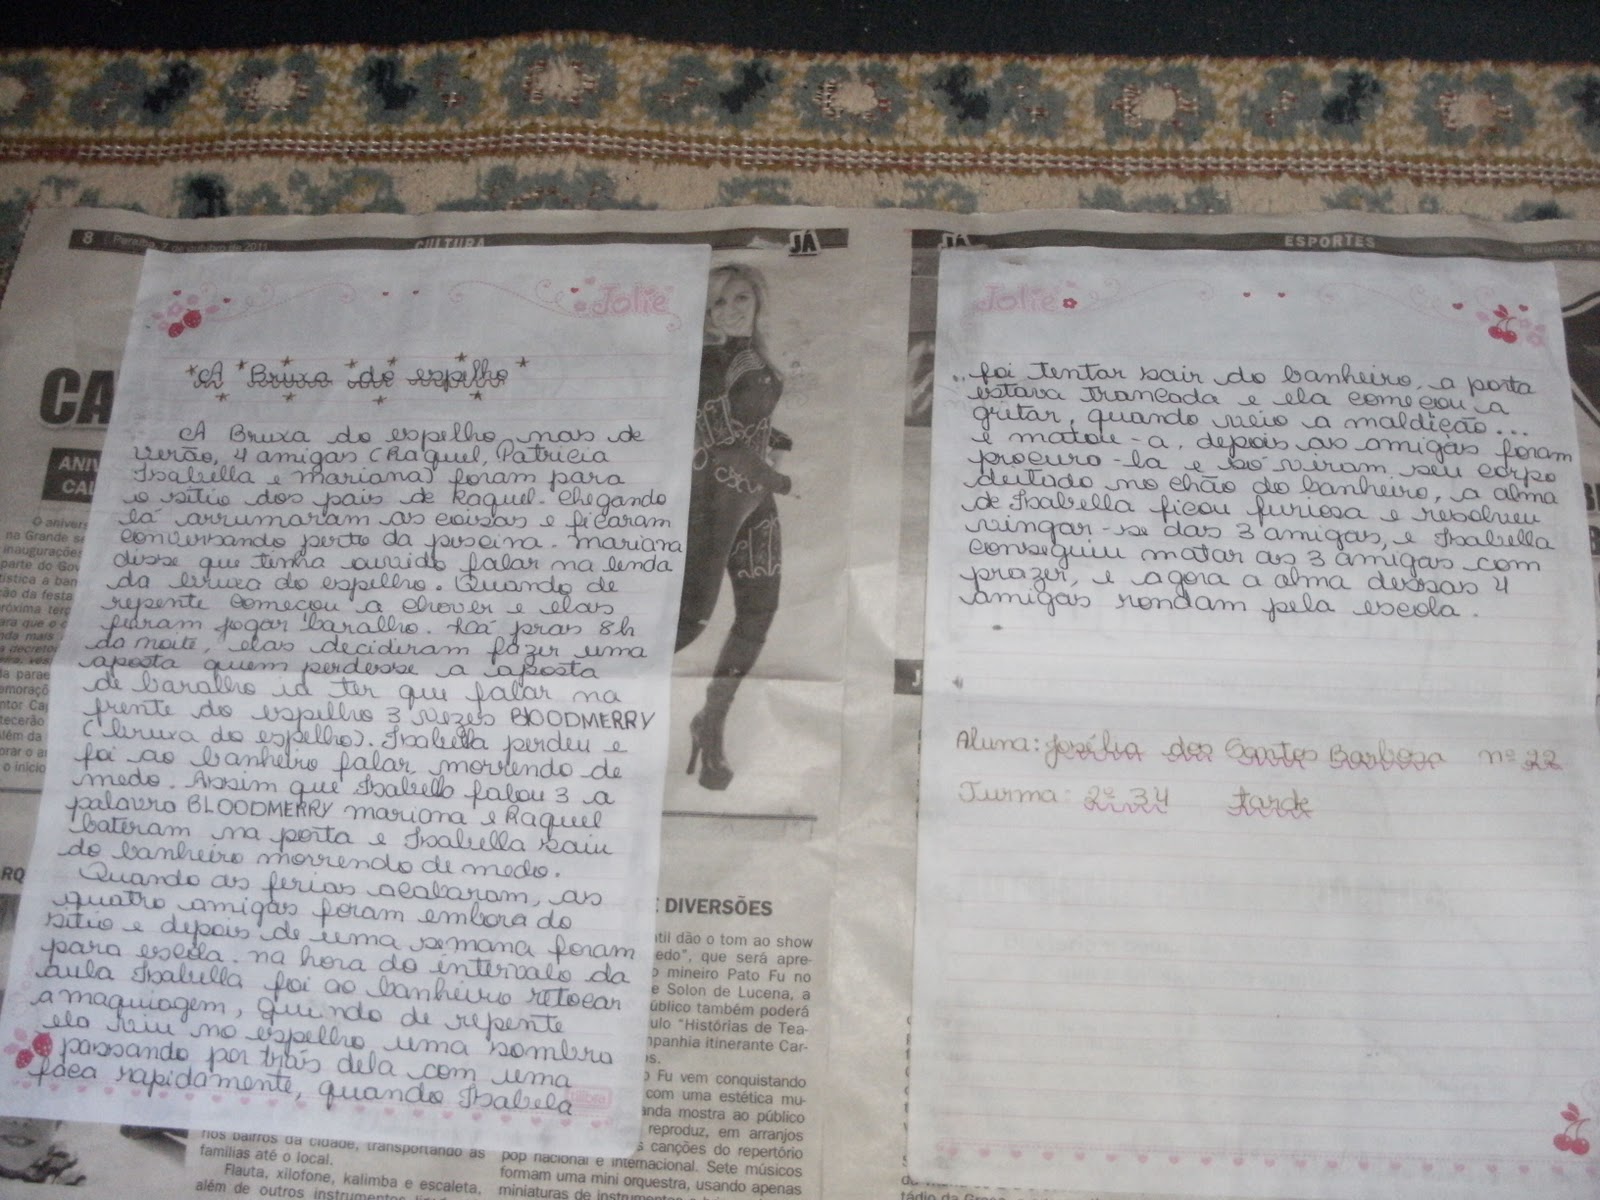 8 Paraíba, 7 de outubro de 2011
CULTURA
JÁ
JÁ
ESPORTES
Paraíba, 7 de
CA
ANIV
CAI
Jolie
A Bruxa do espelho
A Bruxa do espelho, nas de
verão, 4 amigas (Raquel, Patricia
Isabella e mariana) foram para
o sítio dos pais de Raquel. Chegando
lá arrumaram as coisas e ficaram
conversando perto da piscina. Mariana
disse que tinha ouvido falar na lenda
da bruxa do espelho. Quando de
repente começou a chover e elas
foram jogar baralho. Lá pras 8h
da noite, elas decidiram fazer uma
aposta quem perdesse a aposta
de baralho ia ter que falar na
frente do espelho 3 vezes BLOODMERRY
(bruxa do espelho). Isabella perdeu e
foi ao banheiro falar, morrendo de
medo. Assim que Isabella falou 3 a
palavra BLOODMERRY mariana e Raquel
bateram na porta e Isabella saiu
do banheiro morrendo de medo.
Quando as ferias acabaram, as
quatro amigas foram embora do
sítio e depois de uma semana foram
para escola. na hora do intervalo da
aula Isabella foi ao banheiro retocar
a maquiagem, quando de repente
ela viu no espelho uma sombra
passando por trás dela com uma
faca rapidamente, quando Isabela
tilibra
Jolie
...foi tentar sair do banheiro, a porta
estava trancada e ela começou a
gritar, quando veio a maldição...
e matou-a, depois as amigas foram
procuro-la e só viram seu corpo
deitado no chão do banheiro, a alma
de Isabella ficou furiosa e resolveu
vingar-se das 3 amigas, e Isabella
conseguiu matar as 3 amigas com
prazer, e agora a alma dessas 4
amigas rondam pela escola.
Aluna: Josélia dos Santos Barbosa nº 22
Turma: 2º 34 tarde
O anivers
na Grande se
inaugurações
parte do Gov
tística a ban
ção da festa
róxima terç
ara que o c
o início
E DIVERSÕES
til dão o tom ao show
edo", que será apre-
o mineiro Pato Fu no
e Solon de Lucena, a
úblico também poderá
ulo "Histórias de Tea-
mpanhia itinerante Car-
s.
o Fu vem conquistando
com uma estética mu-
anda mostra ao público
reproduz, em arranjos
s canções do repertório
pop nacional e internacional. Sete músicos
formam uma mini orquestra, usando apenas
miniaturas de
nos bairros da cidade, transportando as
famílias até o local.
Flauta, xilofone, kalimba e escaleta,
além de outros